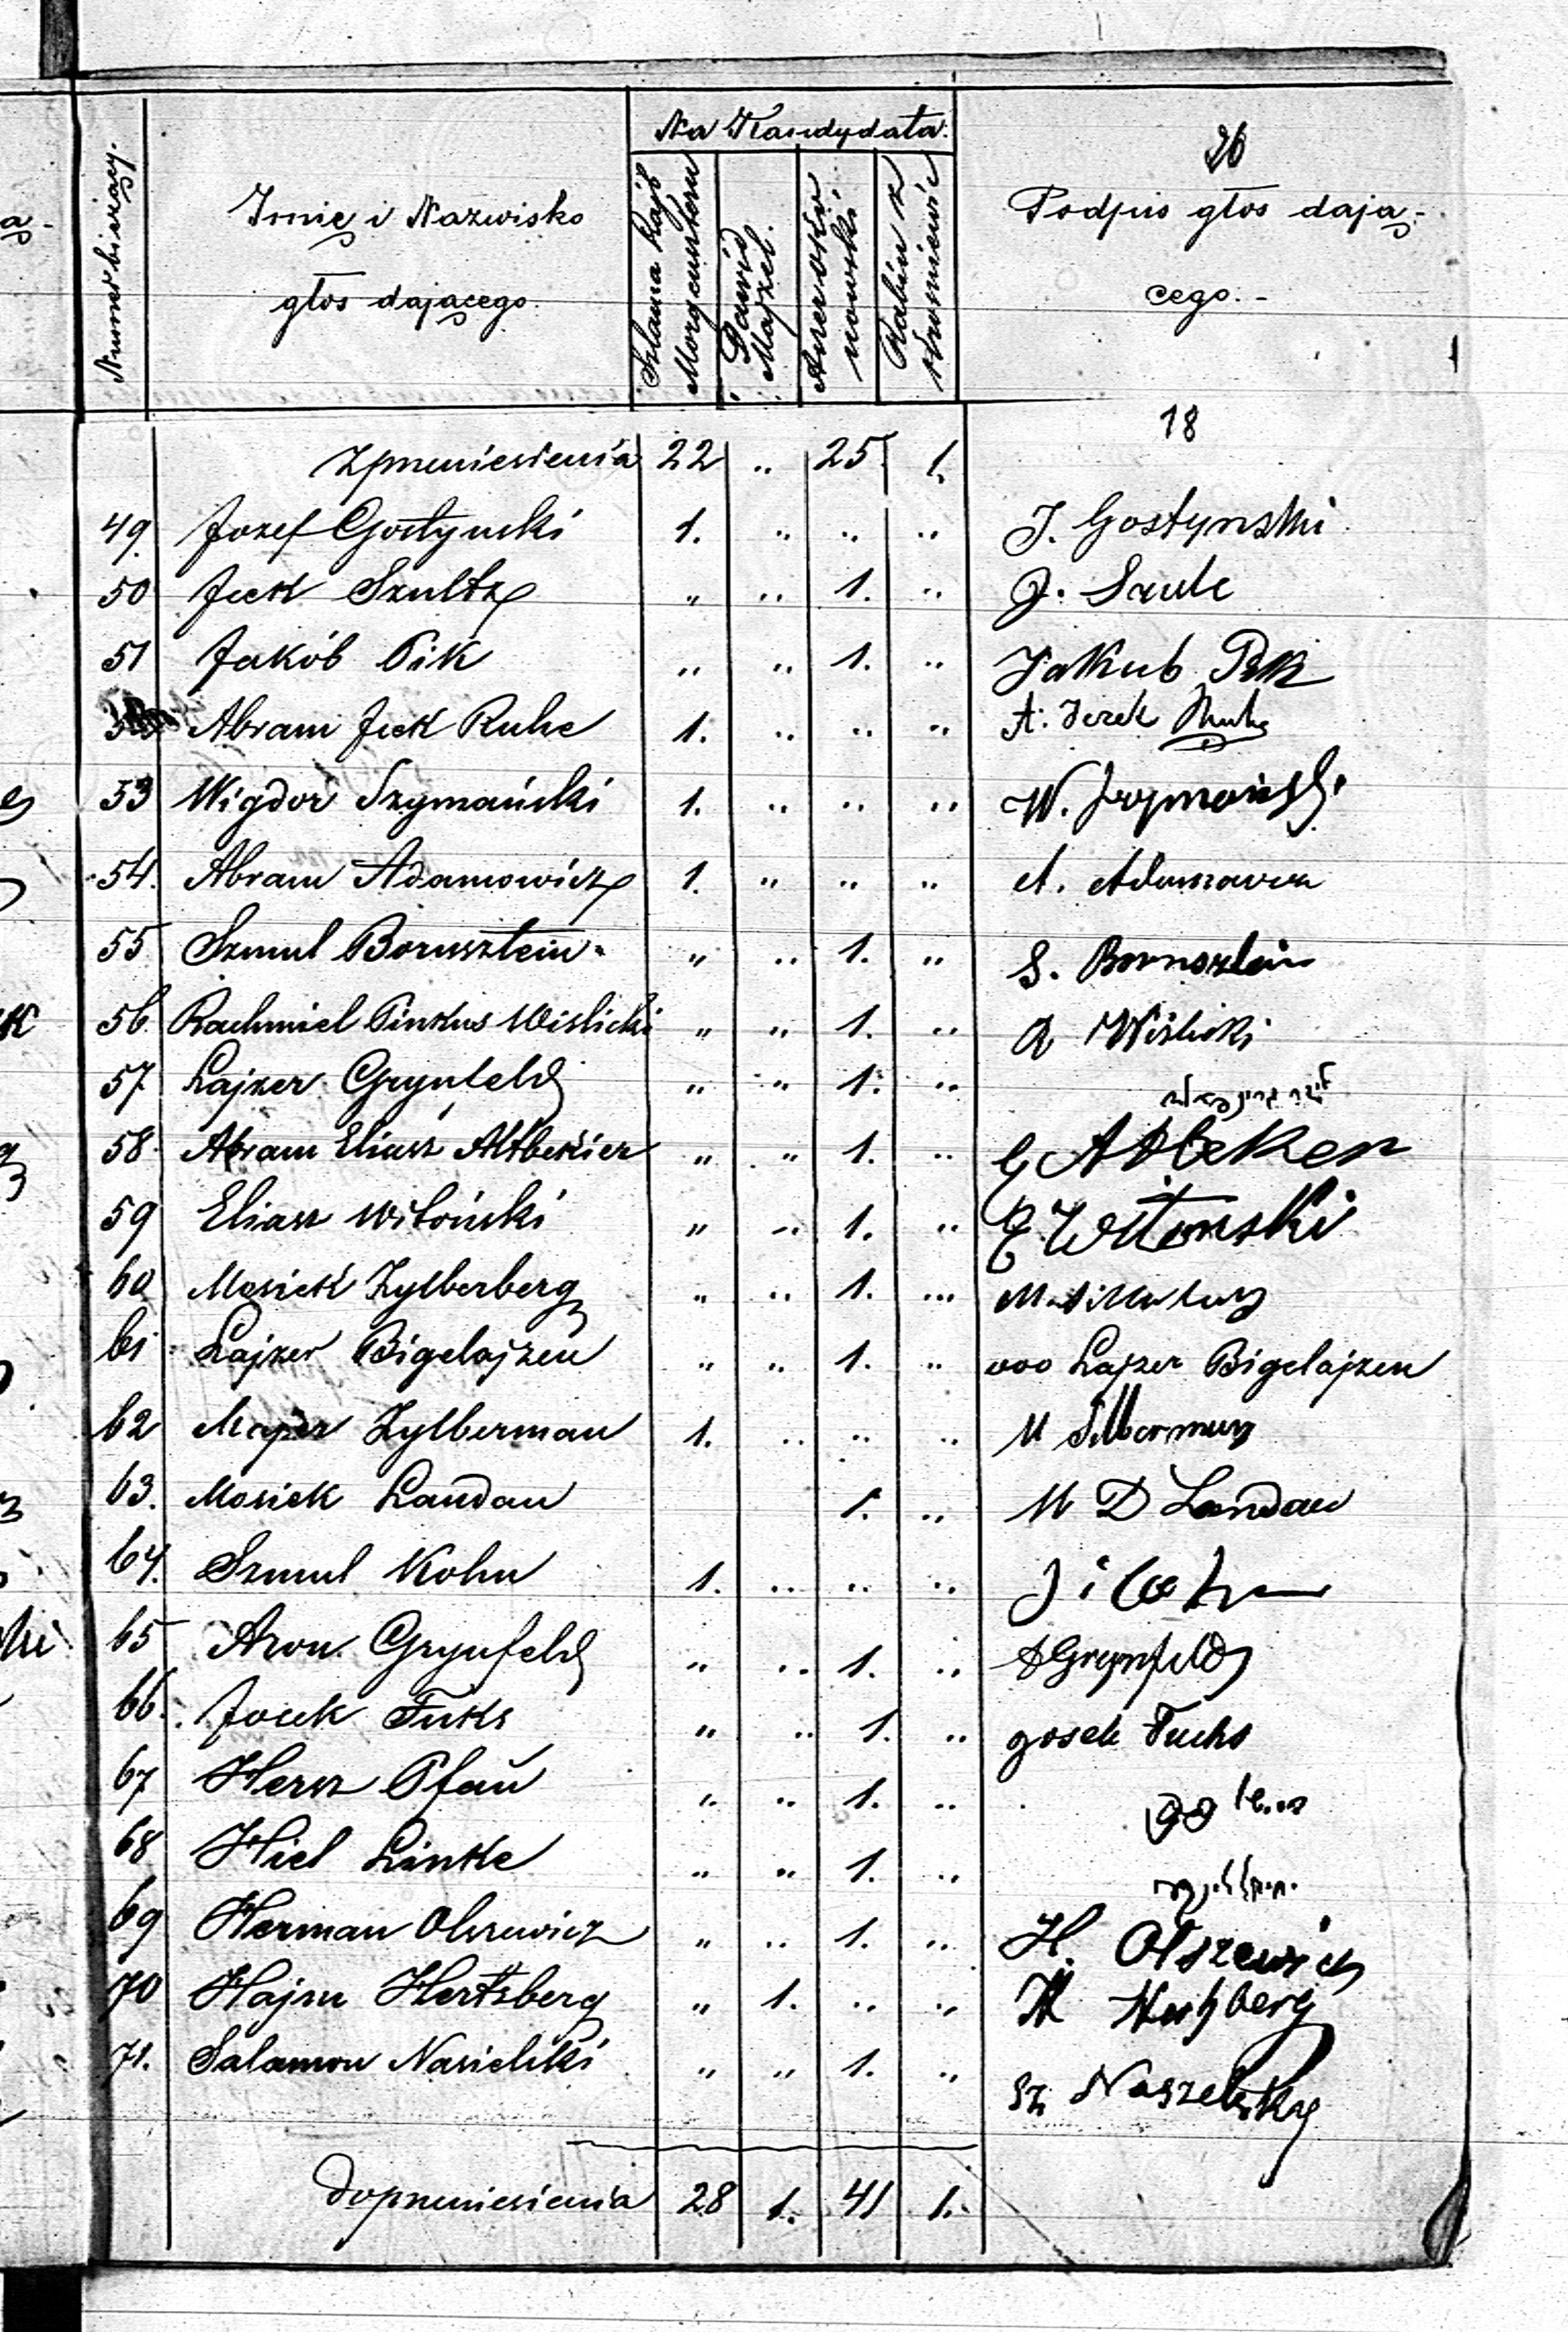 Na Kandydata.
26
Numer bieżący.
Imię i Nazwisko
głos dającego.
Szlama Lajb Morgensztern
Dawid Majzel.
Rabin z
Podpis głos dają-
cego.-
18
Zprzeniesienia 22 .. 25. 1.
49. Jozef Gostynski 1. .. .. .. J. Gostynski
50 Jcek Szultz " .. 1. .. J. Szulc
51 Jakób Pik .. .. 1. .. Jakub Pik
Abram Jcek Ruhe 1. .. .. .. A. Icek Ruhe
53 Wigdor Szymański 1. .. .. .. W. Szymański
54. Abram Adamowicz 1. " .. .. A. Adamowicz
55 Szmul Bornsztein " .. 1. .. S. Bornsztein
56 Rachmiel Pinkus Wislicki " " 1. .. R Wislicki
57 Lajzer Grynfeld " " 1. .. ליזר גרינפעלד
58 Abram Eliasz Altbekier " " 1. ..
59 Eliasz Witoński " .. 1. .. E Witonski
60 Mosiek Zylberberg " .. 1. ...
61 Lajzer Bigelajzen " .. 1. .. ooo Lajzer Bigelajzen
62 Majer Zylberman 1. .. .. .. M Silberman
63. Mosiek Landau 1. .. M D Landau
64. Szmul Kohn 1. .. .. ..
65 Aron Grynfeld " .. 1. .. A Grynfeld
66. Josek Fuks " .. 1. .. Josek Fuchs
67 Hersz Pfau " .. 1. ..
68 Hiel Linke " " 1. ..
69 Herman Olszewicz " .. 1. .. H. Olszewicz
70 Hajm Hertzberg " 1. .. .. H Hertzberg
71. Salamon Nasielski " " 1. .. Sz Naszelsky
Do przeniesienia 28 1. 41 1.